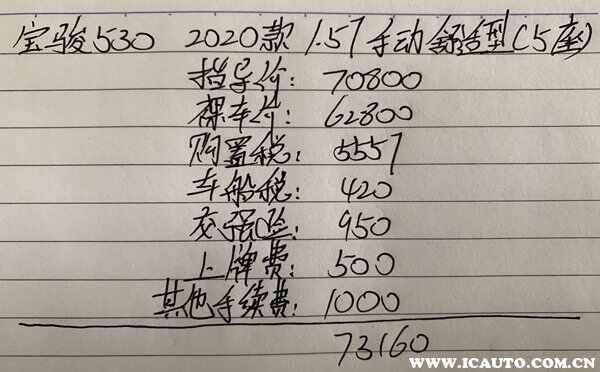 宝骏530 2020款 1.5T手动舒适型(5座)
指导价: 70800
裸车价: 62800
购置税: 5557
车船税: 420
交强险: 950
上牌费: 500
其他手续费: 1000
73160
WWW.ICAUTO.COM.CN